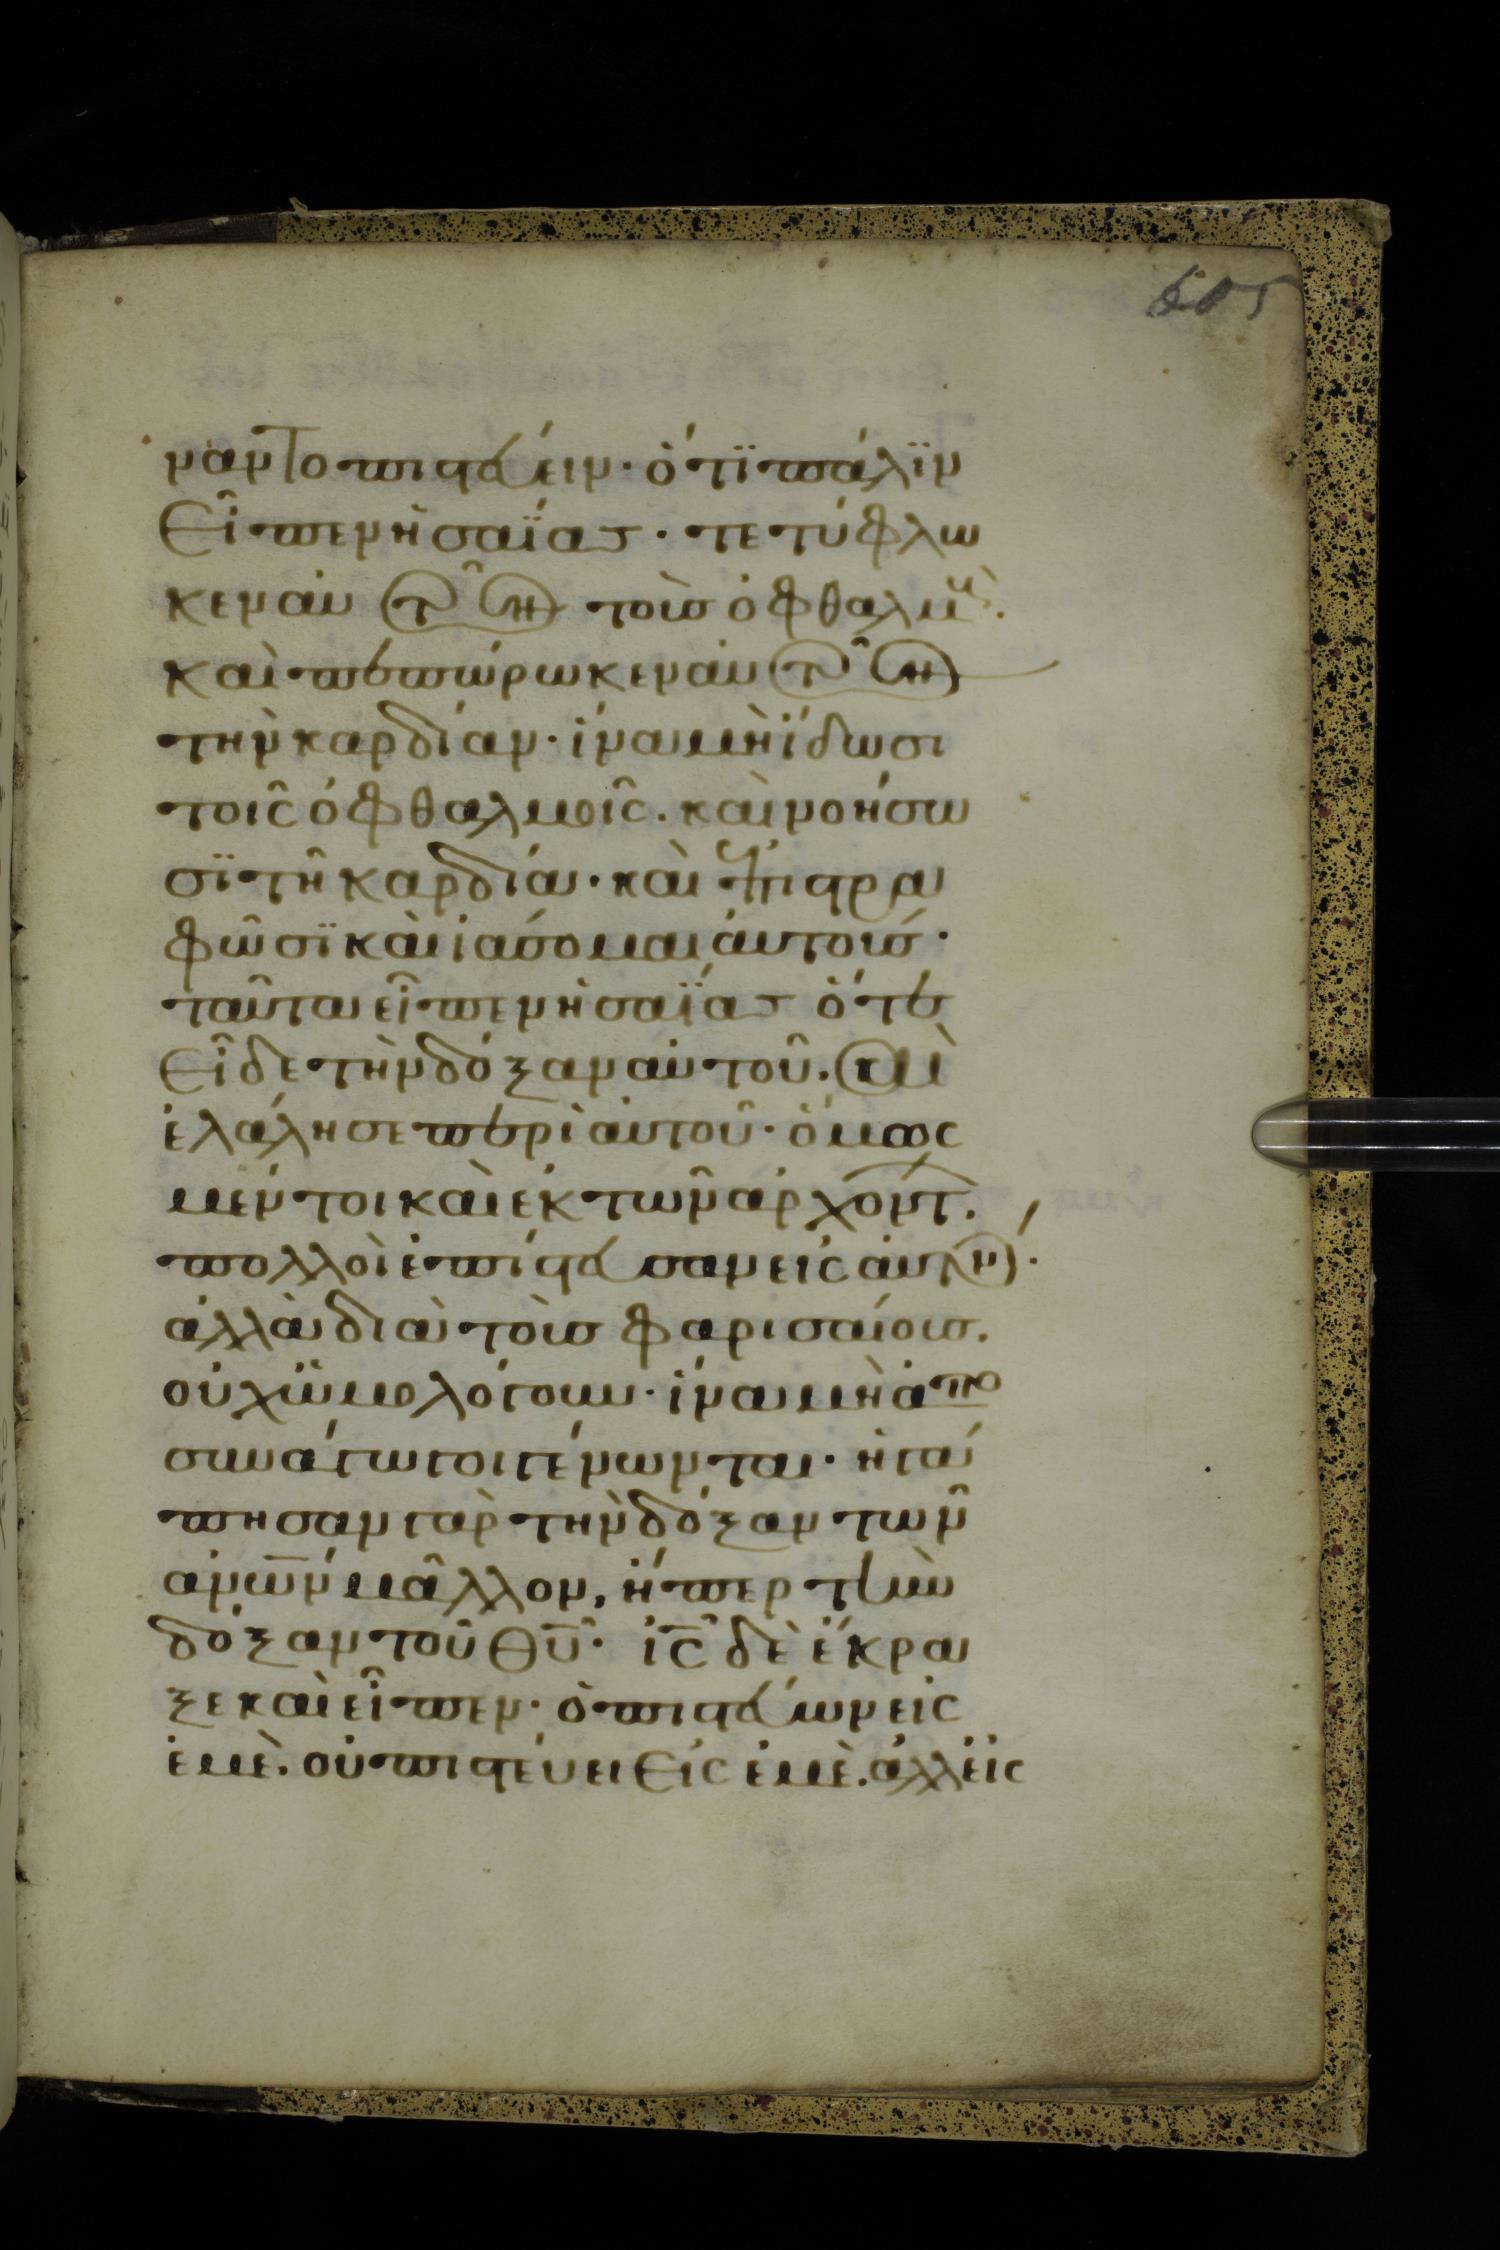 605
ναντο πιστεύειν· ὅτϊ πάλϊν
εἶπεν ἠσαΐας· τετύφλω
κεν αὐτῶν τοὺς ὀφθαλμοὺς·
καὶ πεπώρωκεν αὐτῶν
τὴν καρδίαν· ἵνα μὴ ἴδωσι
τοῖς ὀφθαλμοῖς. καὶ νοήσω
σϊ τῆ καρδία· καὶ ἐπιστρα
φῶσϊ καὶ ἰάσομαι αὐτούς·
ταῦτα εἶπεν ἠσαΐας ὅτε
εἶδε τὴν δόξαν αὐτοῦ. καὶ
ἐλάλησε περὶ αὐτοῦ· ὅμως
μέντοι καὶ ἐκ τῶν ἀρχόντ.
πολλοὶ ἐπίστευσαν εἰς αὐτόν·
ἀλλὰ διὰ τοὺς φαρισαίους.
οὐχ ὡμολόγουν· ἵνα μὴ ἀπο
συνάγωγοι γένωνται· ἠγά
πησαν γὰρ τὴν δόξαν τῶν
ἀνων μᾶλλον, ἤπερ τὴν
δόξαν τοῦ θυ· ις δὲ ἔκρα
ξε καὶ εἶπεν· ὁ πιστεύων εἰς
ἐμὲ. οὐ πιστεύει εἰς ἐμὲ. ἀλλ εἰς